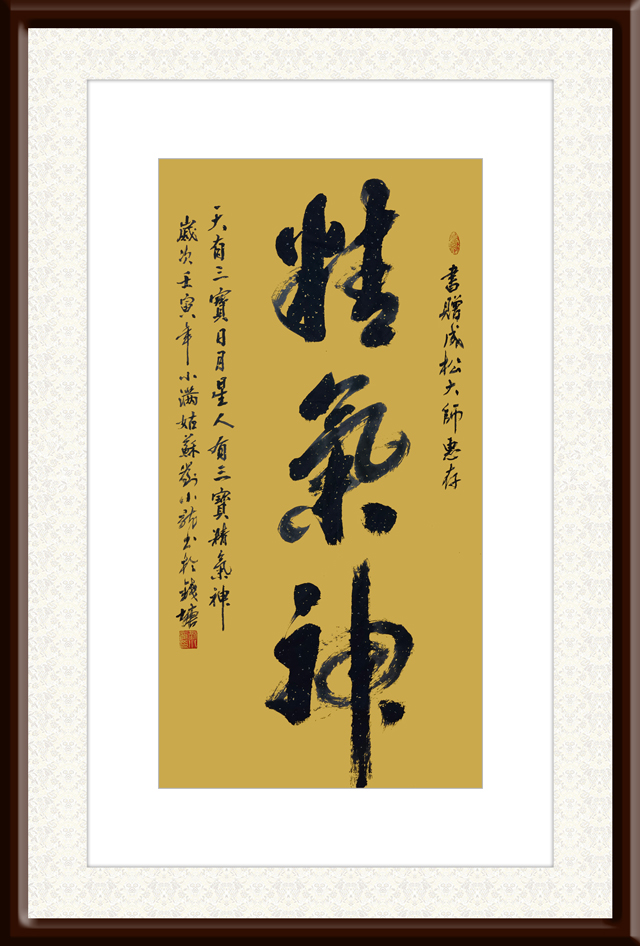 書贈成松大師惠存
精氣神
天有三寶日月星人有三寶精氣神
歲次壬寅年小滿姑蘇劉小龍书於錢塘